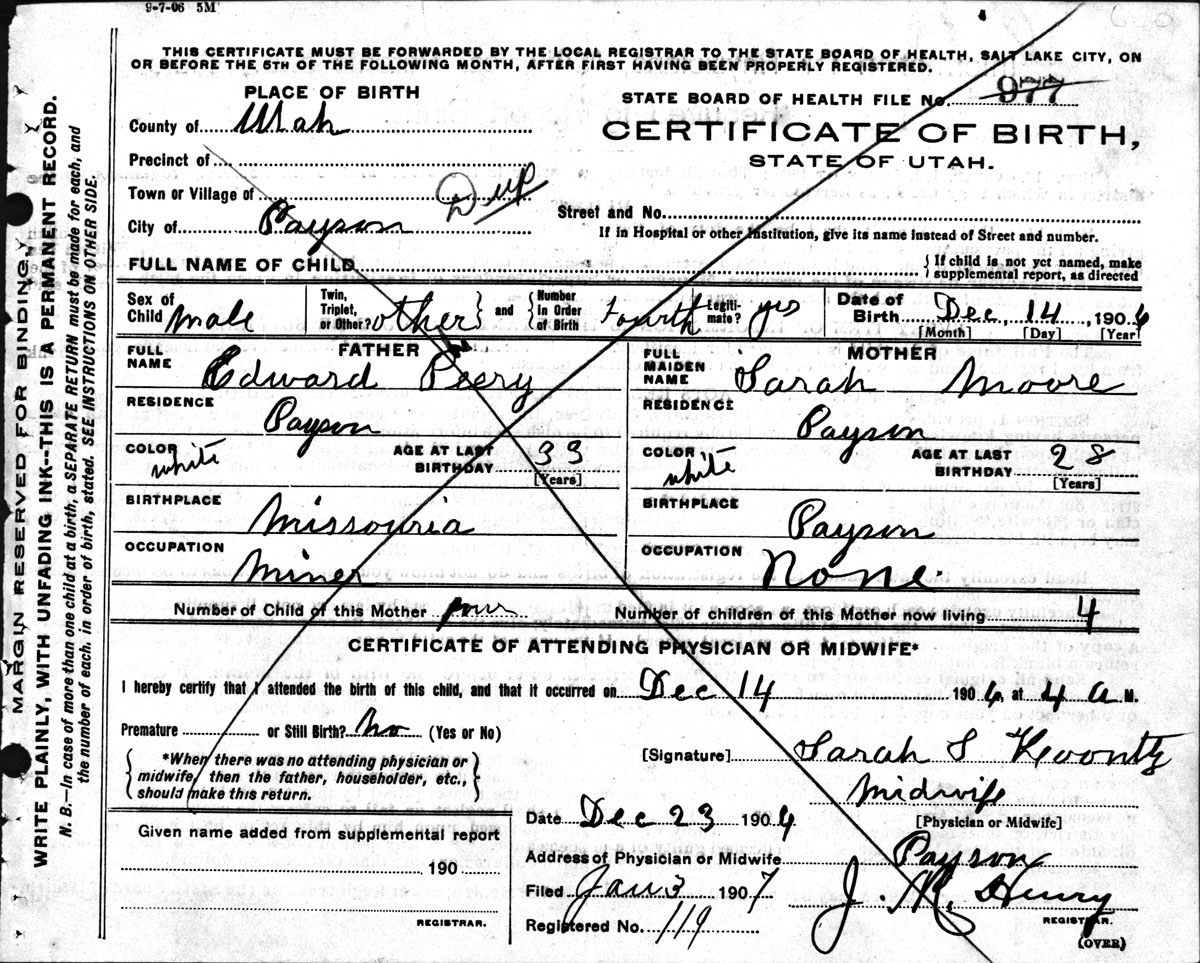 9-7-06 5M
THIS CERTIFICATE MUST BE FORWARDED BY THE LOCAL REGISTRAR TO THE STATE BOARD OF HEALTH, SALT LAKE CITY, ON
OR BEFORE THE 5TH OF THE FOLLOWING MONTH, AFTER FIRST HAVING BEEN PROPERLY REGISTERED.
PLACE OF BIRTH
STATE BOARD OF HEALTH FILE No. 977
County of Utah
CERTIFICATE OF BIRTH,
STATE OF UTAH.
Precinct of
Town or Village of
Dup
Street and No.
City of Payson
If in Hospital or other Institution, give its name instead of Street and number.
FULL NAME OF CHILD
If child is not yet named, make
supplemental report, as directed
Sex of Child Male
Twin, Triplet, or Other? other and Number in Order of Birth Fourth
Legitimate? yes
Date of Birth Dec, 14, 1906
[Month] [Day] [Year]
FATHER
FULL NAME Edward Peery
MOTHER
FULL MAIDEN NAME Sarah Moore
RESIDENCE Payson
RESIDENCE Payson
COLOR white AGE AT LAST BIRTHDAY 33
[Years]
COLOR white AGE AT LAST BIRTHDAY 28
[Years]
BIRTHPLACE Missouria
BIRTHPLACE Payson
OCCUPATION Miner
OCCUPATION None.
Number of Child of this Mother four Number of children of this Mother now living 4
CERTIFICATE OF ATTENDING PHYSICIAN OR MIDWIFE*
I hereby certify that I attended the birth of this child, and that it occurred on Dec 14 1906, at 4 a M.
Premature or Still Birth? No (Yes or No)
*When there was no attending physician or
midwife, then the father, householder, etc.,
should make this return.
[Signature] Sarah S
Midwife
[Physician or Midwife]
Date Dec 23 1906
Given name added from supplemental report
190
REGISTRAR.
Address of Physician or Midwife Payson
Filed Jan 3 1907 J. M. Henry
REGISTRAR.
Registered No. 119
(OVER)
MARGIN RESERVED FOR BINDING,
WRITE PLAINLY, WITH UNFADING INK--THIS IS A PERMANENT RECORD.
N. B.—In case of more than one child at a birth, a SEPARATE RETURN must be made for each, and
the number of each, in order of birth, stated. SEE INSTRUCTIONS ON OTHER SIDE.